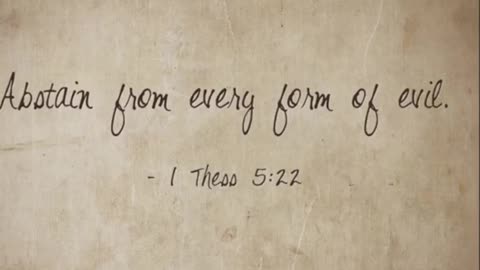 Abstain from every form of evil.
- 1 Thess 5:22